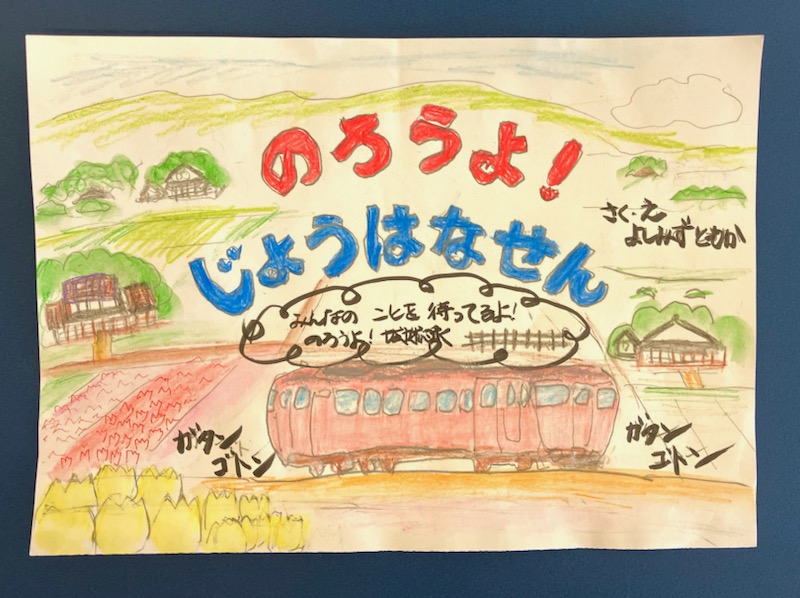 のろうよ!
じょうはなせん
さく・え
よしみずともか
みんなの ことを 待ってるよ!
のろうよ! 城端線
ガタン
ゴトン
ガタン
ゴトン